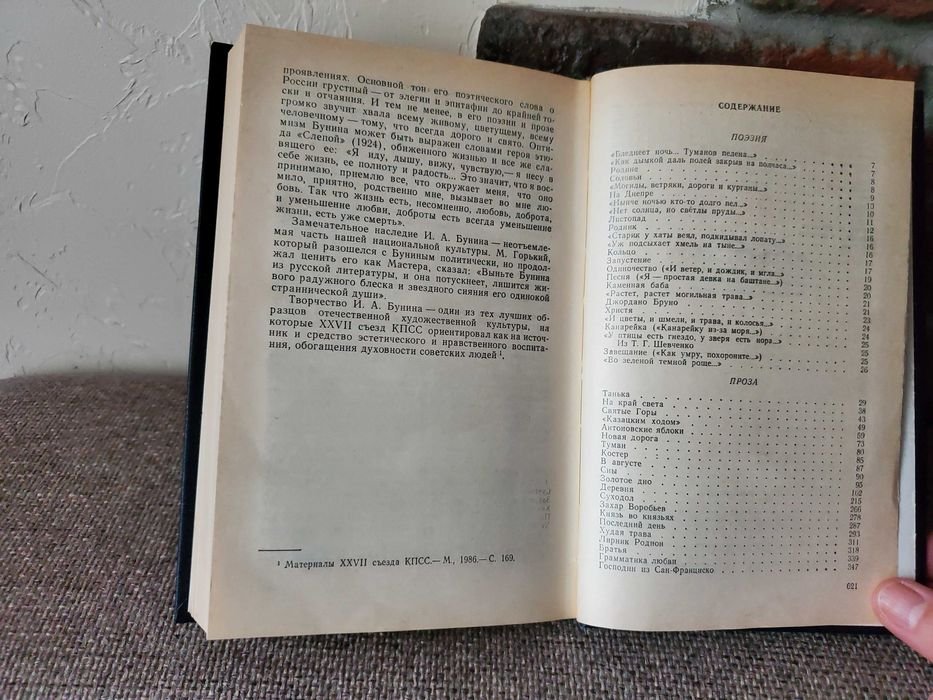 проявлениях. Основной тон его поэтического слова о
России грустный — от элегии и эпитафии до крайней то-
ски и отчаяния. И тем не менее, в его поэзии и прозе
громко звучит хвала всему живому, цветущему, всему
человечному — тому, что всегда дорого и свято. Опти-
мизм Бунина может быть выражен словами героя этю-
да «Слепой» (1924), обиженного жизнью и все же сла-
вящего ее: «Я иду, дышу, вижу, чувствую,— я несу в
себе жизнь, ее полноту и радость... Это значит, что я вос-
принимаю, приемлю все, что окружает меня, что оно
мило, приятно, родственно мне, вызывает во мне лю-
бовь. Так что жизнь есть, несомненно, любовь, доброта,
и уменьшение любви, доброты есть всегда уменьшение
жизни, есть уже смерть».
Замечательное наследие И. А. Бунина — неотъемле-
мая часть нашей национальной культуры. М. Горький,
который разошелся с Буниным политически, но продол-
жал ценить его как Мастера, сказал: «Выньте Бунина
из русской литературы, и она потускнеет, лишится жи-
вого радужного блеска и звездного сияния его одинокой
страннической души».
Творчество И. А. Бунина — один из тех лучших об-
разцов отечественной художественной культуры, на
которые XXVII съезд КПСС ориентировал как на источ-
ник и средство эстетического и нравственного воспита-
ния, обогащения духовности советских людей ¹.
¹ Материалы XXVII съезда КПСС.— М., 1986.— С. 169.
СОДЕРЖАНИЕ
ПОЭЗИЯ
«Бледнеет ночь... Туманов пелена...» 7
«Как дымкой даль полей закрыв на полчаса...» 7
Родине 8
Соловьи 8
«Могилы, ветряки, дороги и курганы...» 9
На Днепре 9
«Нынче ночью кто-то долго пел...» 10
«Нет солнца, но светлы пруды...» 10
Листопад 11
Родник 12
«Старик у хаты веял, подкидывал лопату...» 16
«Уж подсыхает хмель на тыне...» 16
Кольцо 16
Запустение 17
Одиночество («И ветер, и дождик, и мгла...») 17
Песня («Я — простая девка на баштане...») 19
Каменная баба 20
«Растет, растет могильная трава...» 20
Джордано Бруно 21
Христя 21
«И цветы, и шмели, и трава, и колосья...» 23
Канарейка («Канарейку из-за моря...») 24
«У птицы есть гнездо, у зверя есть нора...» 24
Из Т. Г. Шевченко 25
Завещание («Как умру, похороните...») 25
«Во зеленой темной роще...» 26
ПРОЗА
Танька 29
На край света 38
Святые Горы 43
«Казацким ходом» 49
Антоновские яблоки 59
Новая дорога 73
Туман 80
Костер 85
В августе 87
Сны 90
Золотое дно 95
Деревня 162
Суходол 215
Захар Воробьев 266
Князь во князьях 278
Последний день 287
Худая трава 293
Лирник Родион 311
Братья 318
Грамматика любви 339
Господин из Сан-Франциско 347
621